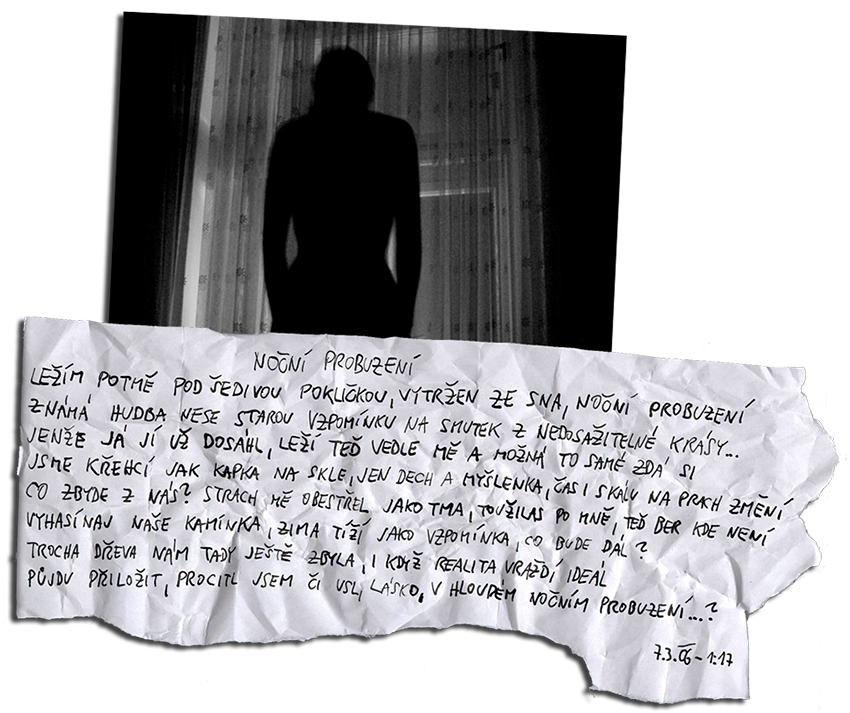 NOČNÍ PROBUZENÍ
LEŽÍM POTMĚ POD ŠEDIVOU POKLIČKOU, VYTRŽEN ZE SNA, NOČNÍ PROBUZENÍ
ZNÁMÁ HUDBA NESE STAROU VZPOMÍNKU NA SMUTEK Z NEDOSAŽITELNÉ KRÁSY...
JENŽE JÁ JÍ UŽ DOSÁHL, LEŽÍ TEĎ VEDLE MĚ A MOŽNÁ TO SAMÉ ZDÁ SI
JSME KŘEHCÍ JAK KAPKA NA SKLE, JEN DECH A MYŠLENKA, ČAS I SKÁLU NA PRACH ZMĚNÍ
CO ZBYDE Z NÁS? STRACH MĚ OBESTŘEL JAKO TMA, TOUŽILAS PO MNĚ, TEĎ BER KDE NENÍ
VYHASÍNAJ NAŠE KAMÍNKA, ZIMA TÍŽÍ JAKO VZPOMÍNKA, CO BUDE DÁL?
TROCHA DŘEVA NÁM TADY JEŠTĚ ZBYLA, I KDYŽ REALITA VRAŽDÍ IDEÁL
PŮJDU PŘILOŽIT, PROCITL JSEM ČI LÁSKO, V HLOUBÉM NOČNÍM PROBUZENÍ...?
7.3.06 - 1:17